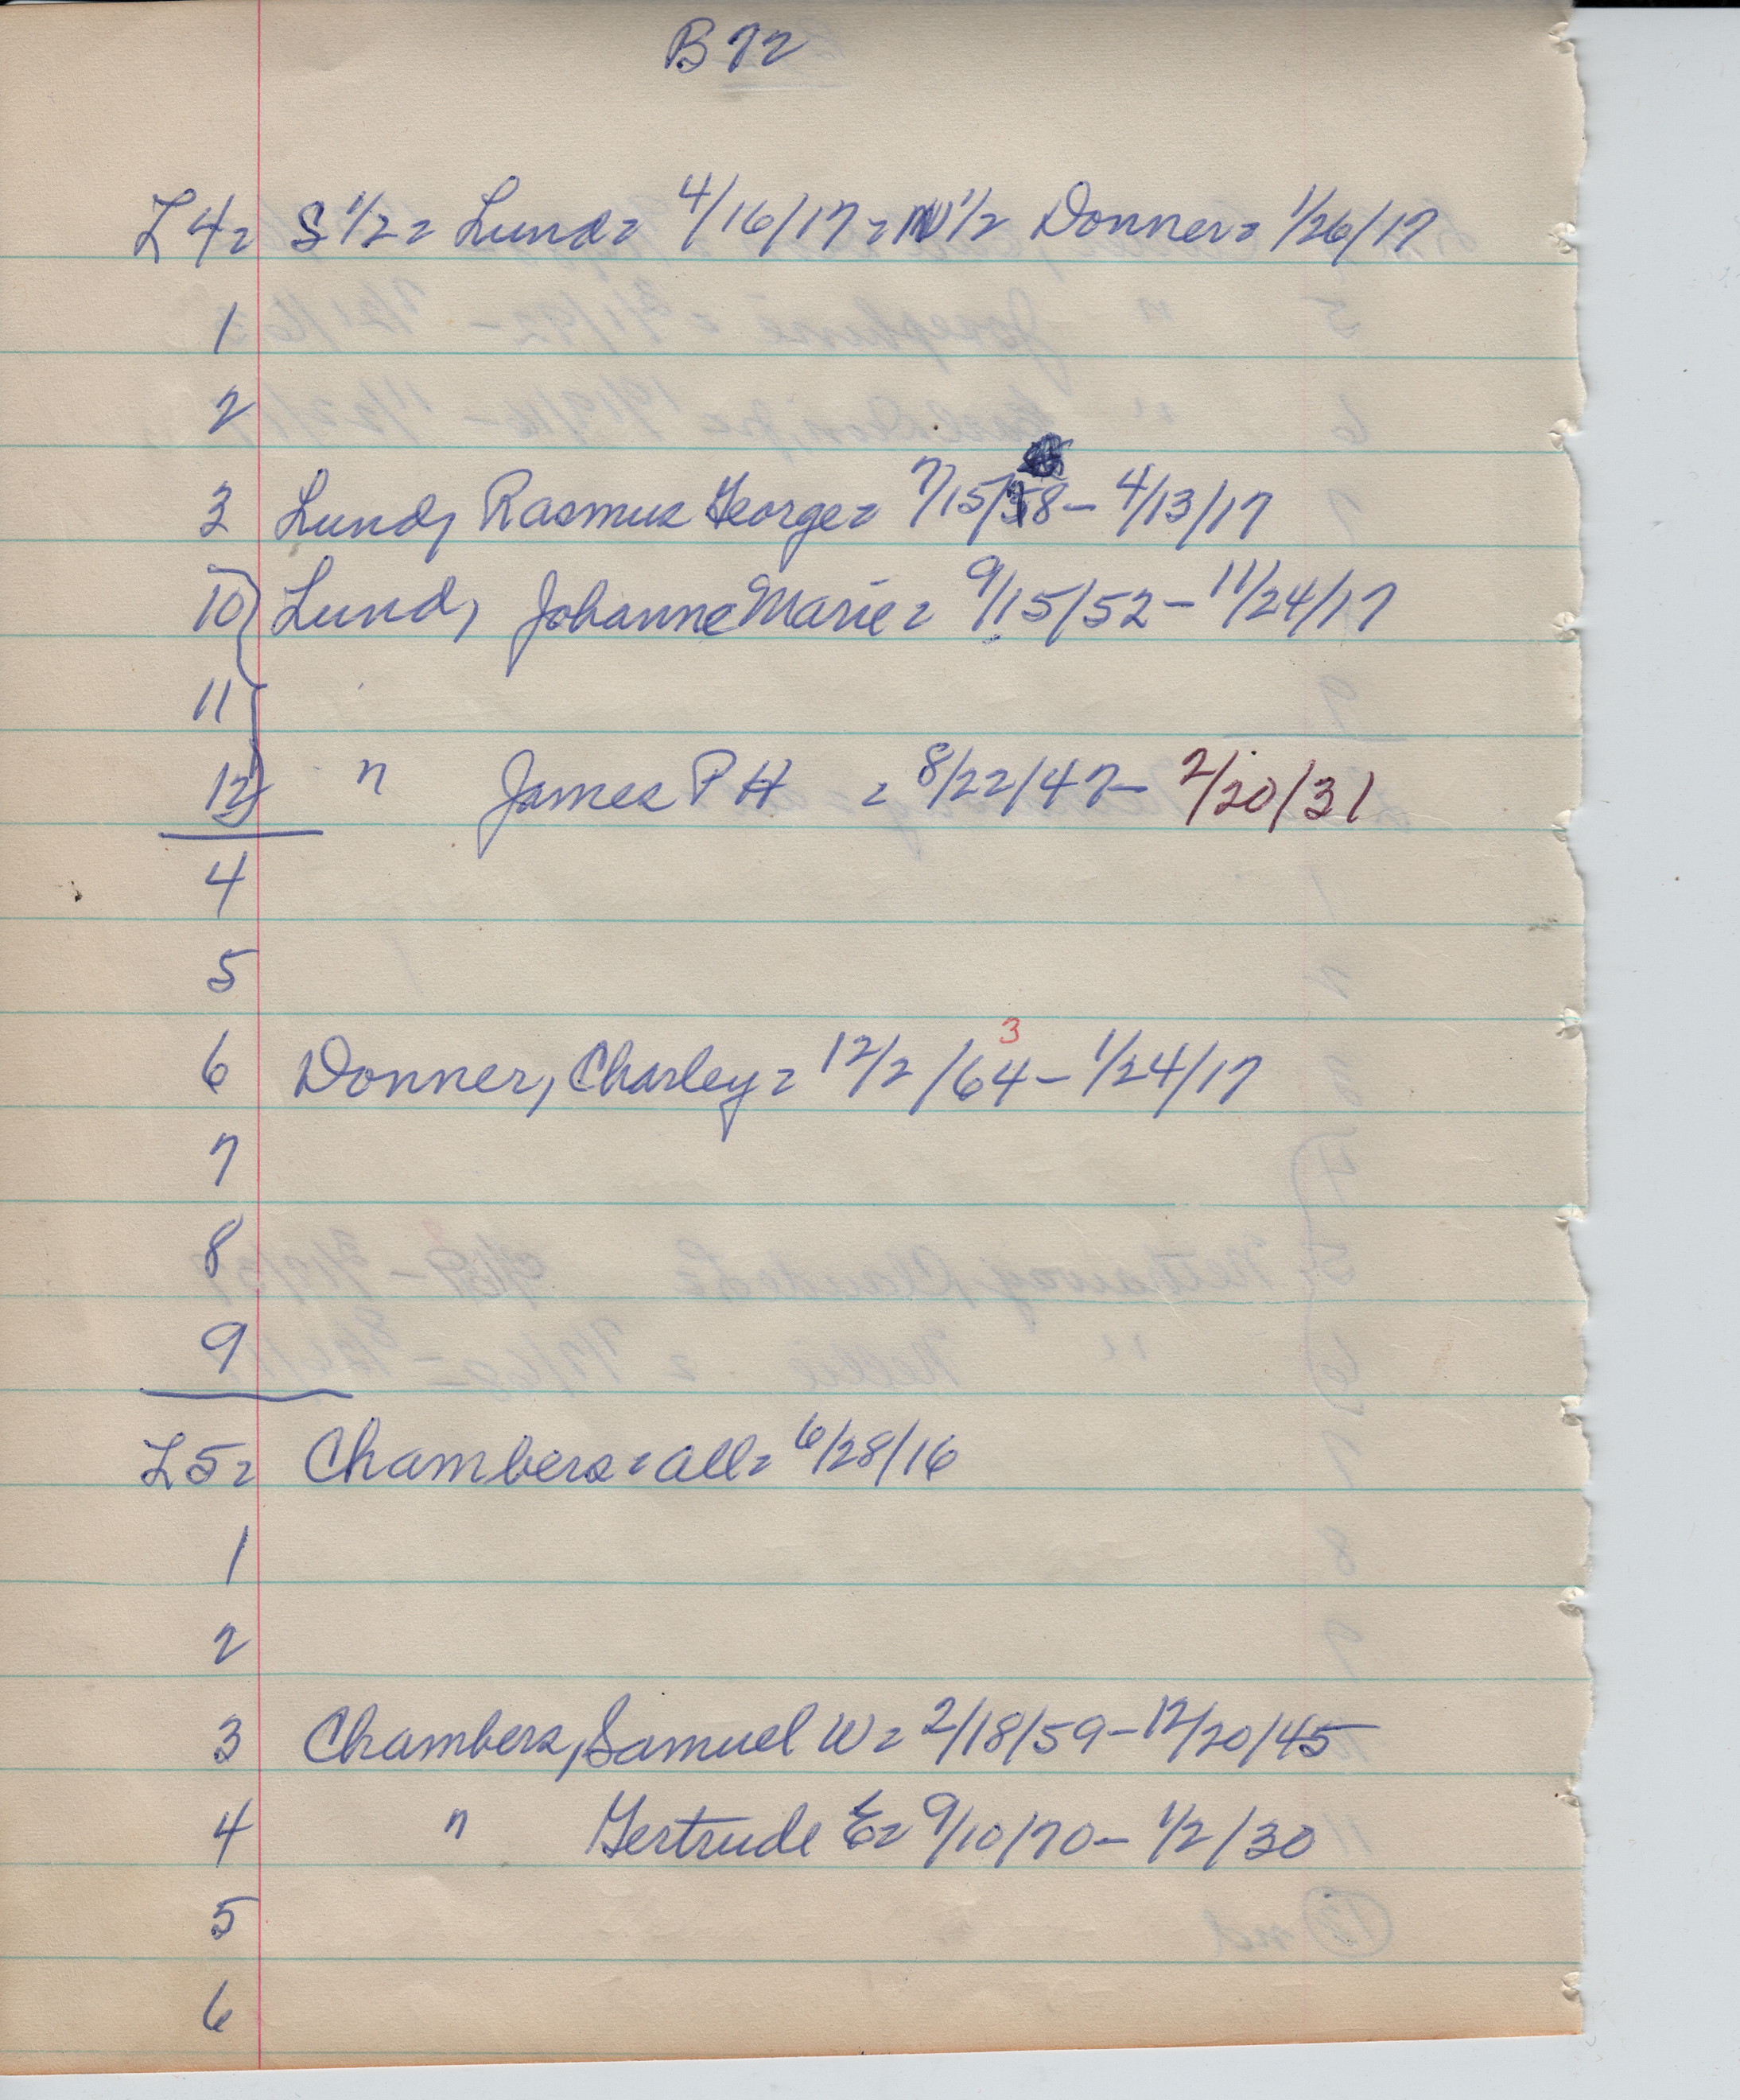 B 72
L 4= S 1/2 = Lund = 4/16/17 = N 1/2 Donner = 1/26/17
1
2
3 Lund, Rasmus George = 7/15/58 - 4/13/17
10 Lund, Johanne Marie = 9/15/52 - 11/24/17
11
12 " James P H = 8/22/47 - 2/20/31
4
5
3
6 Donner, Charley = 12/2/64 - 1/24/17
7
8
9
L 5= Chambers = all = 6/28/16
1
2
3 Chambers, Samuel W = 2/18/59 - 12/20/45
4 " Gertrude E = 9/10/70 - 1/2/30
5
6